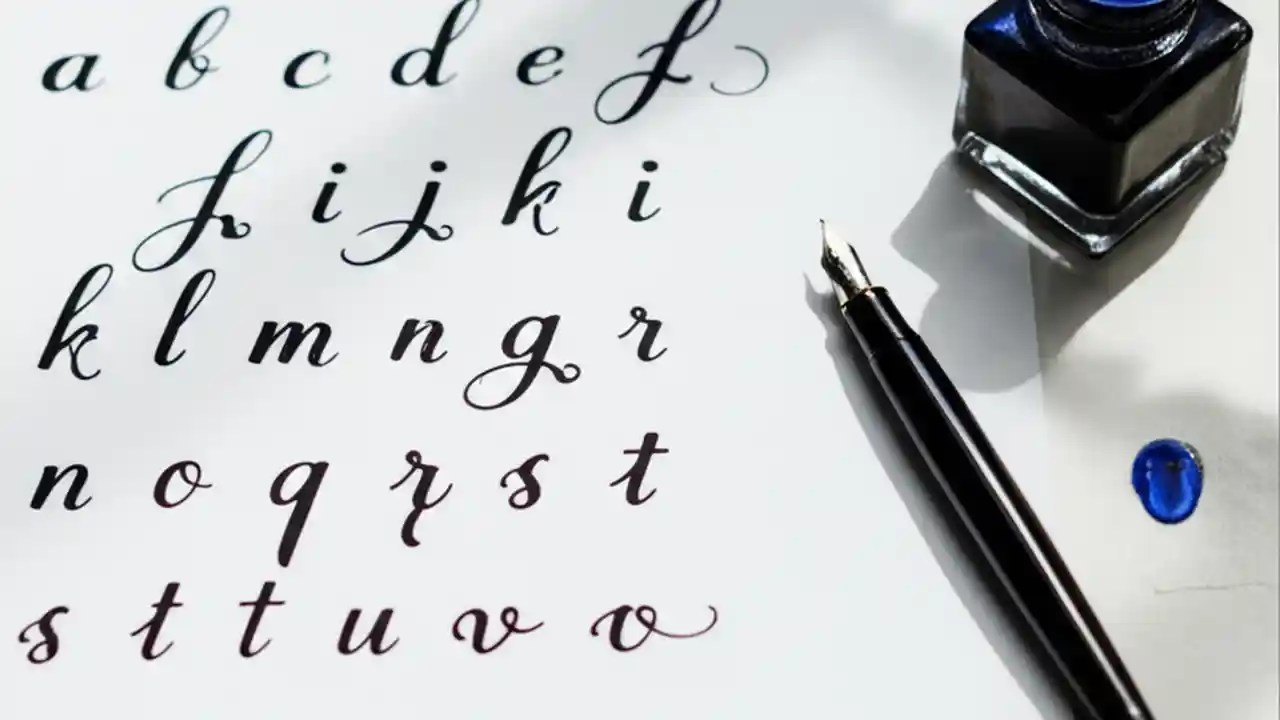 a b c d e f
f i j k i
k l m n g r
n o q r s t
s t t u v o